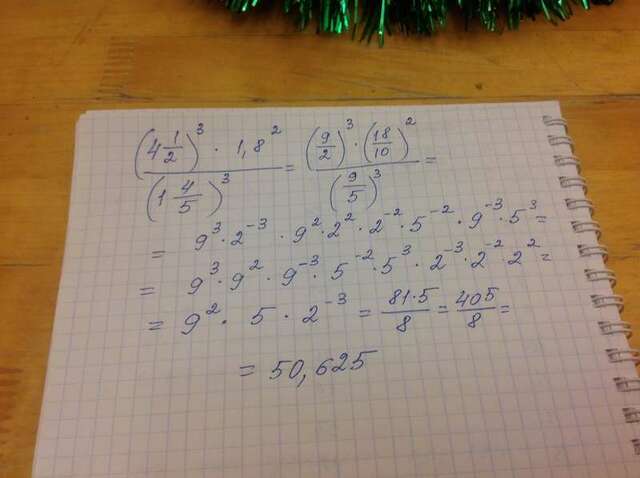 (4 1/2)^3 · 1,8^2 / (1 4/5)^3 = (9/2)^3 · (18/10)^2 / (9/5)^3 =
= 9^3 · 2^-3 · 9^2 · 2^2 · 2^-2 · 5^-2 · 9^-3 · 5^3 =
= 9^3 · 9^2 · 9^-3 · 5^-2 · 5^3 · 2^-3 · 2^-2 · 2^2 =
= 9^2 · 5 · 2^-3 = 81·5/8 = 405/8 =
= 50,625